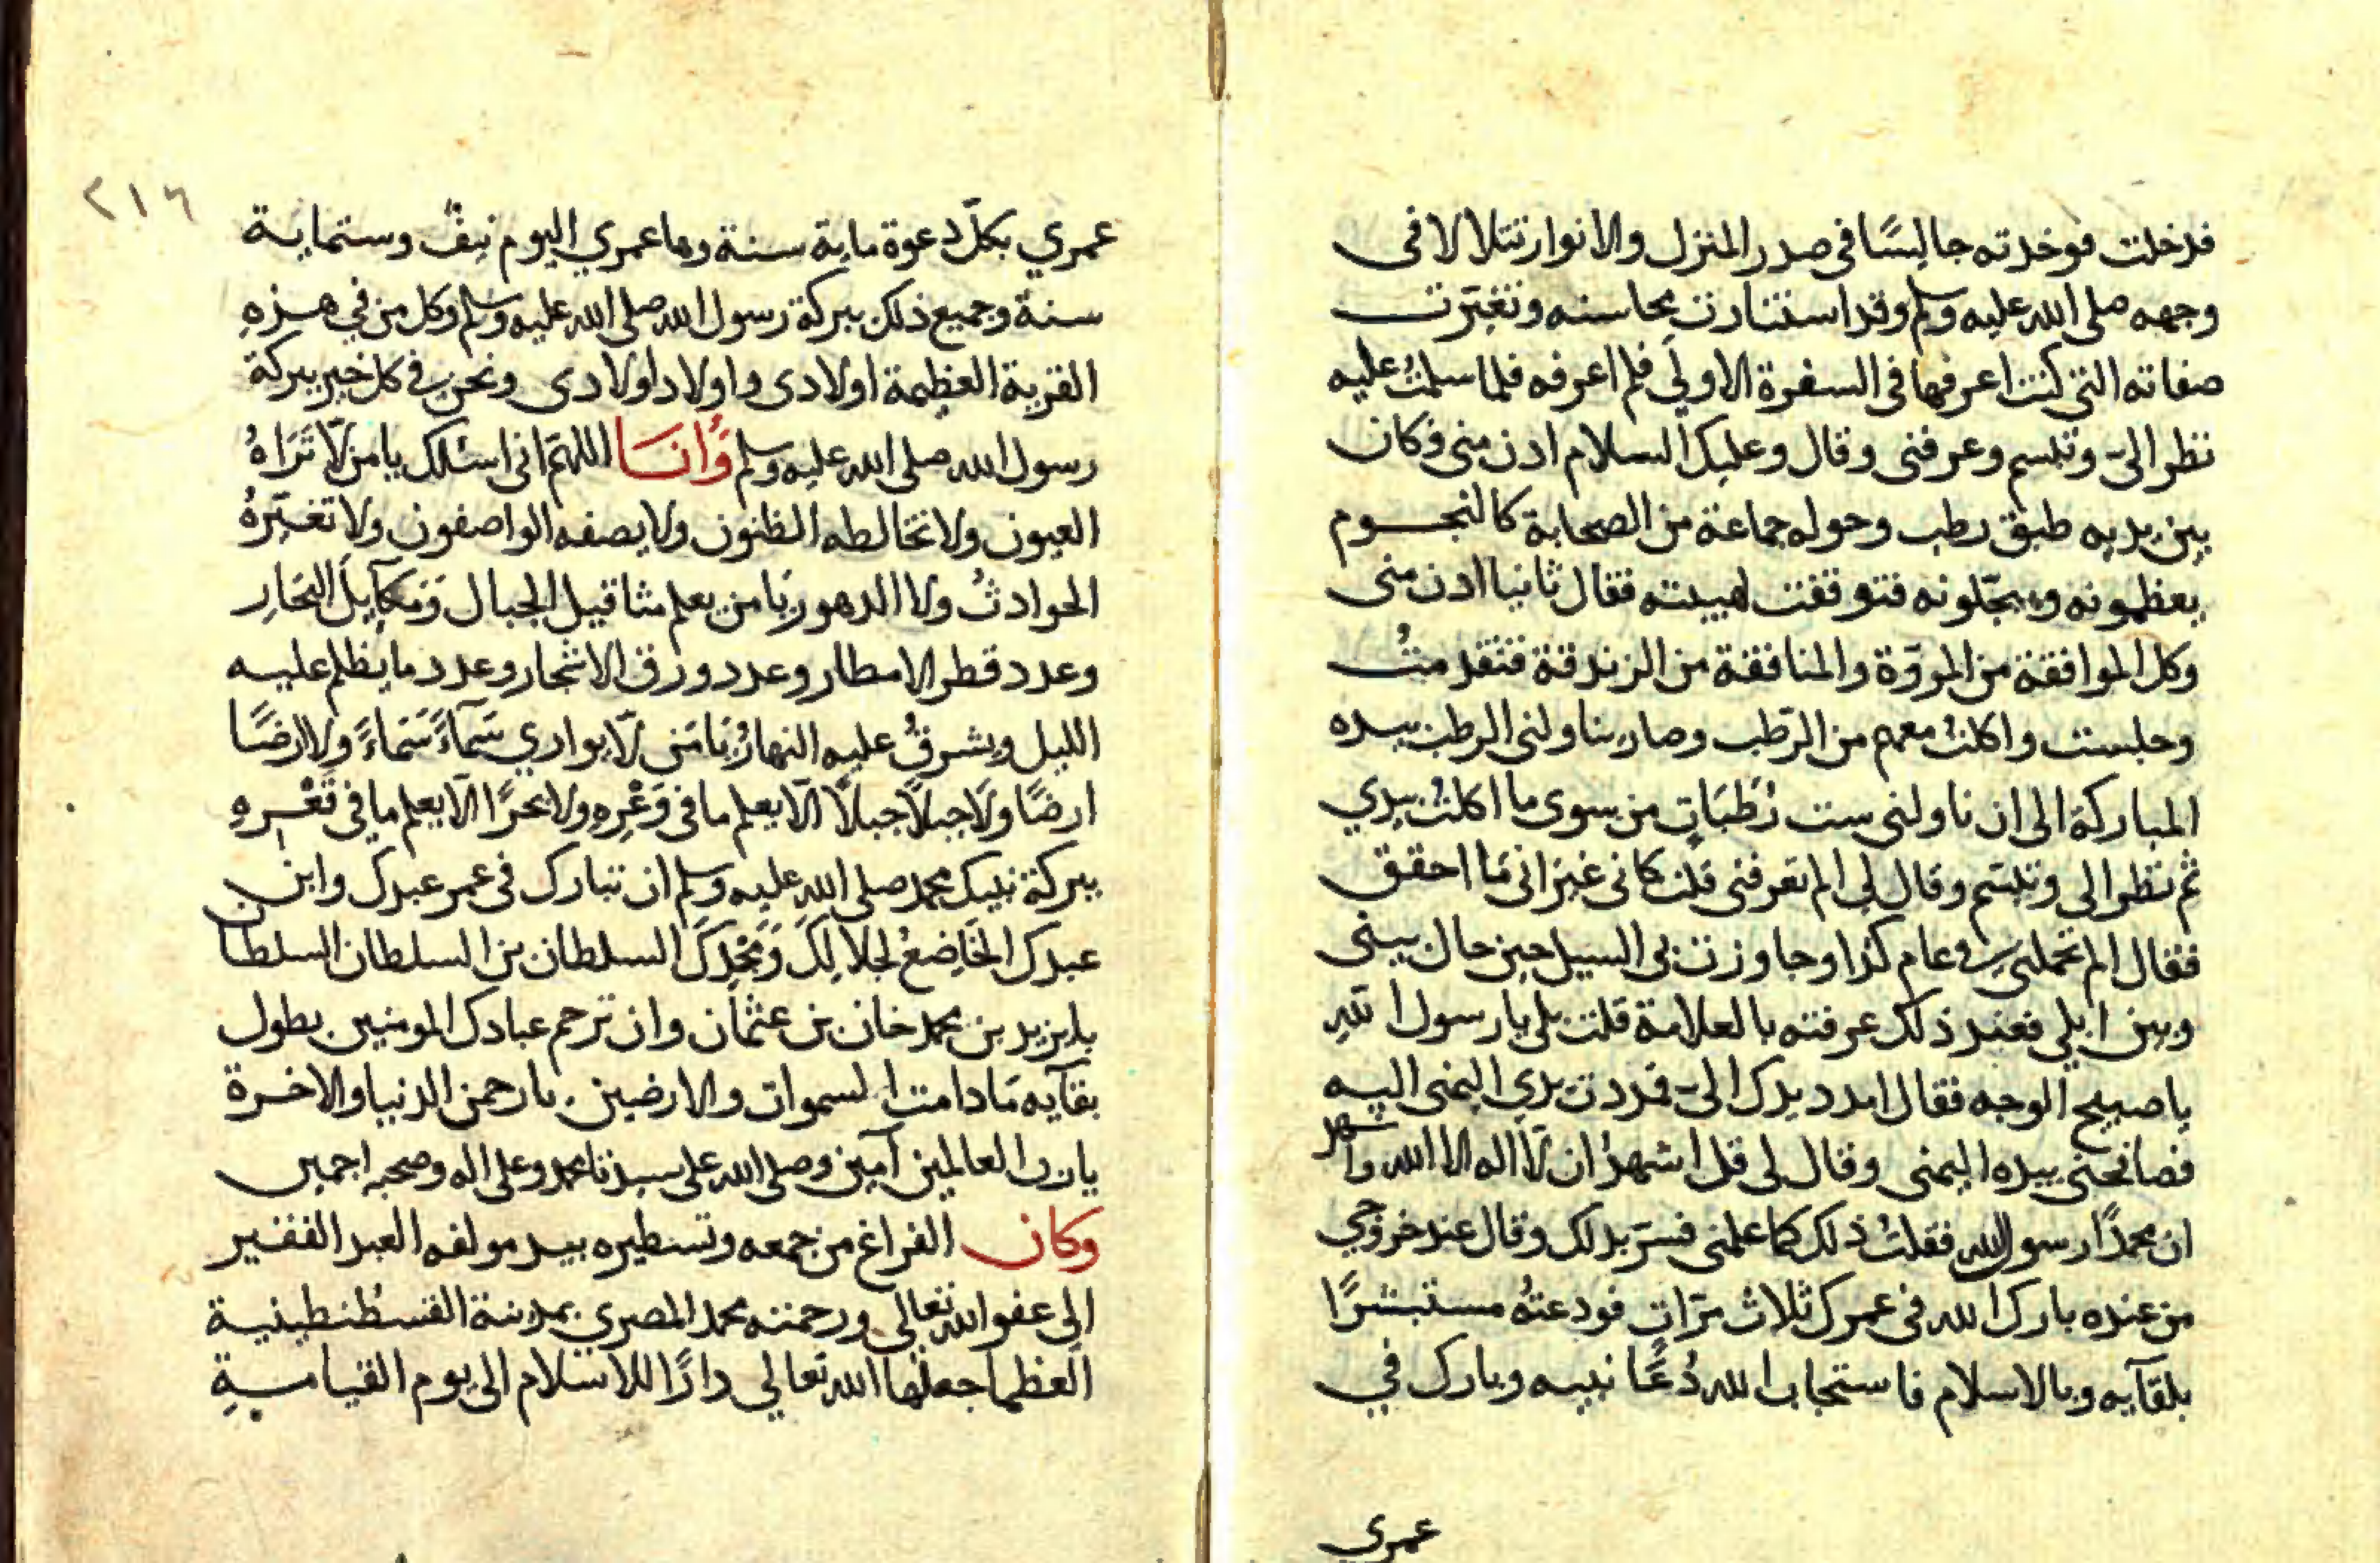 فدخلت فوجدته جالسًا فى صدر المنزل والانوار تتلالا فى
وجهه صلى الله عليه وسلم وقد استنارت محاسنه وتغيّرت
صفاته التى كنت اعرفها فى السفرة الاولى فلم اعرفه فلما سلمت عليه
نظر الىّ وتبسم وعرفنى وقال وعليك السلام ادن منى وكان
بين يديه طبق رطب وحوله جماعة من الصحابة كالنجوم
يعظمونه ويبجّلونه فتوقفت لهيبته فقال ثانيا ادن منى
وكل الموافقة من المروّة والمنافقة من الزندقة فتقدمتُ
وجلست واكلتُ معهم من الرّطب وصار يناولنى الرطب بيده
المباركة الى ان ناولنى ست رُطَبَاتٍ من سوى ما اكلتُ بيدي
ثم نظر الى وتبسّم وقال لى الم تعرفنى قلت كانى غير انى مَا احقق
فقال الم تحملنى فى عام كذا وجاوزت بى السيل حين حال بينى
وبين ابلى فعند ذلك عرفته بالعلامة قلت بلى يا رسول الله
يا صبيح الوجه فقال امدد يدك الىّ فمددت يدي اليمنى اليه
فصافحنى بيده اليمنى وقال لى قل اشهدُ ان لّا اله الا الله واشهد
ان محمدًا رسول الله فقلتُ ذلك كما علمنى فسرّ بذلك وقال عند خروجي
من عنده بارك الله فى عمرك ثلاث مرّاتٍ فودعتهُ مستبشرًا
بلقآيه وبالاسلام فاستجاب الله دُعَا نبيه وبارك في
عمري
٢١٦
عمري بكلّ دعوة ماية سنة وها عمري اليوم نيفٌ وستماية
سنة وجميع ذلك ببركة رسول الله صلى الله عليه وسلم وكل من في هذهِ
القرية العظيمة اولادى واولاد اولادى ونحن فى كل خير ببركة
رسول الله صلى الله عليه وسلم وَأنَا اللهمّ انى اسئلك يا من لّا تَرَاهُ
العيون ولا تخالطه الظنون ولا يصفه الواصفون ولا تغيّرهُ
الحوادثُ ولا الدهور يَا من يعلم مثاقيل الجبال وَمكآيلَ البحَارِ
وعدد قطر الامطار وعدد ورق الاشجار وعدد ما يظلم عليه
الليل ويشرقُ عليه النهارُ يَا مَن لّا يواري سَمآءً سَمَاءً ولا ارضًا
ارضًا ولَا جبلًا جبلًا الّا يعلم ما فى وَعْرِهِ ولا بحرًا الّا يعلم ما فى قَعْرِهِ
ببركة نبيك محمد صلى اللهِ عليه وسلم ان تبارك فى عمر عبدك وابن
عبدك الخَاضِعُ لجلَالِكَ وَمجْدِكَ السلطان بن السلطان السلطان
بايزيد بن محمد خان بن عثمان وان ترحم عبادك المومنين بطول
بقآيه مَا دامت السموات والارضين يا رحمن الدنيا والاخرة
يا رب العالمين آمين وصلى الله على سيدنا محمد وعلى اله وصحبه اجمعين
وكان الفراغ من جمعه وتسطيره بيد مولفه العبد الفقير
الى عفو الله تعالى ورحمته محمد المصري بمدينة القسطنطينية
العظما جعلها الله تعالى دارًا للاسلام الى يوم القيامةِ